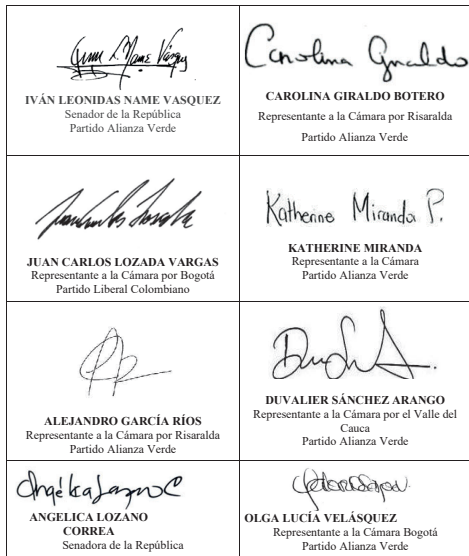 Ivan L. Name Vasquez
IVÁN LEONIDAS NAME VASQUEZ
Senador de la República
Partido Alianza Verde
Carolina Giraldo
CAROLINA GIRALDO BOTERO
Representante a la Cámara por Risaralda
Partido Alianza Verde
JUAN CARLOS LOZADA VARGAS
Representante a la Cámara por Bogotá
Partido Liberal Colombiano
Katherine Miranda P.
KATHERINE MIRANDA
Representante a la Cámara
Partido Alianza Verde
ALEJANDRO GARCÍA RÍOS
Representante a la Cámara por Risaralda
Partido Alianza Verde
DUVALIER SÁNCHEZ ARANGO
Representante a la Cámara por el Valle del
Cauca
Partido Alianza Verde
Angélica Lozano C
ANGELICA LOZANO
CORREA
Senadora de la República
OLGA LUCÍA VELÁSQUEZ
Representante a la Cámara Bogotá
Partido Alianza Verde